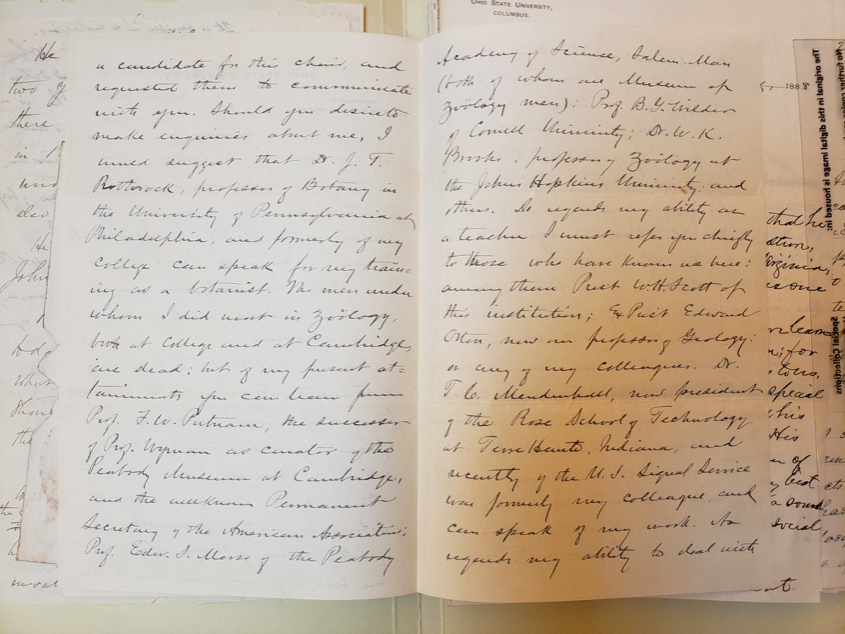 a candidate for this chair, and
requested them to communicate
with you. Should you desire to
make enquiries about me, I
would suggest that Dr. J. T.
Rothrock, professor of Botany in
the University of Pennsylvania at
Philadelphia, and formerly of my
college can speak for my train-
ing as a botanist. The men under
whom I did most in zoölogy,
both at college and at Cambridge,
are dead; but of my present at-
tainments you can learn from
Prof. F. W. Putnam, the successor
of Prof. Wyman as curator of the
Peabody Museum at Cambridge,
and the well known Permanent
Secretary of the American Association;
Prof. Edw. S. Morse of the Peabody
Academy of Science, Salem Mass
(both of whom are Museum of
zoölogy men); Prof. B. G. Wilder
of Cornell University; Dr. W. K.
Brooks, professor of Zoölogy at
the Johns Hopkins University: and
others. As regards my ability as
a teacher I must refer you chiefly
to those who have known me here:
among them Prest W. H. Scott of
this institution; Ex Prest Edward
Orton, now our professor of Geology:
or any of my colleagues. Dr.
T. C. Mendenhall, now president
of the Rose School of Technology
at Terre Haute, Indiana, and
recently of the U. S. Signal Service
was formerly my colleague, and
can speak of my work. As
regards my ability to deal with
Ohio State University,
COLUMBUS.
188
He
two
there
in
also
He
John
what
the
that he
Virginia,
learn
for
special
his
His
of
best
a sound
social
The original in this digital image is housed in:
Special Collections